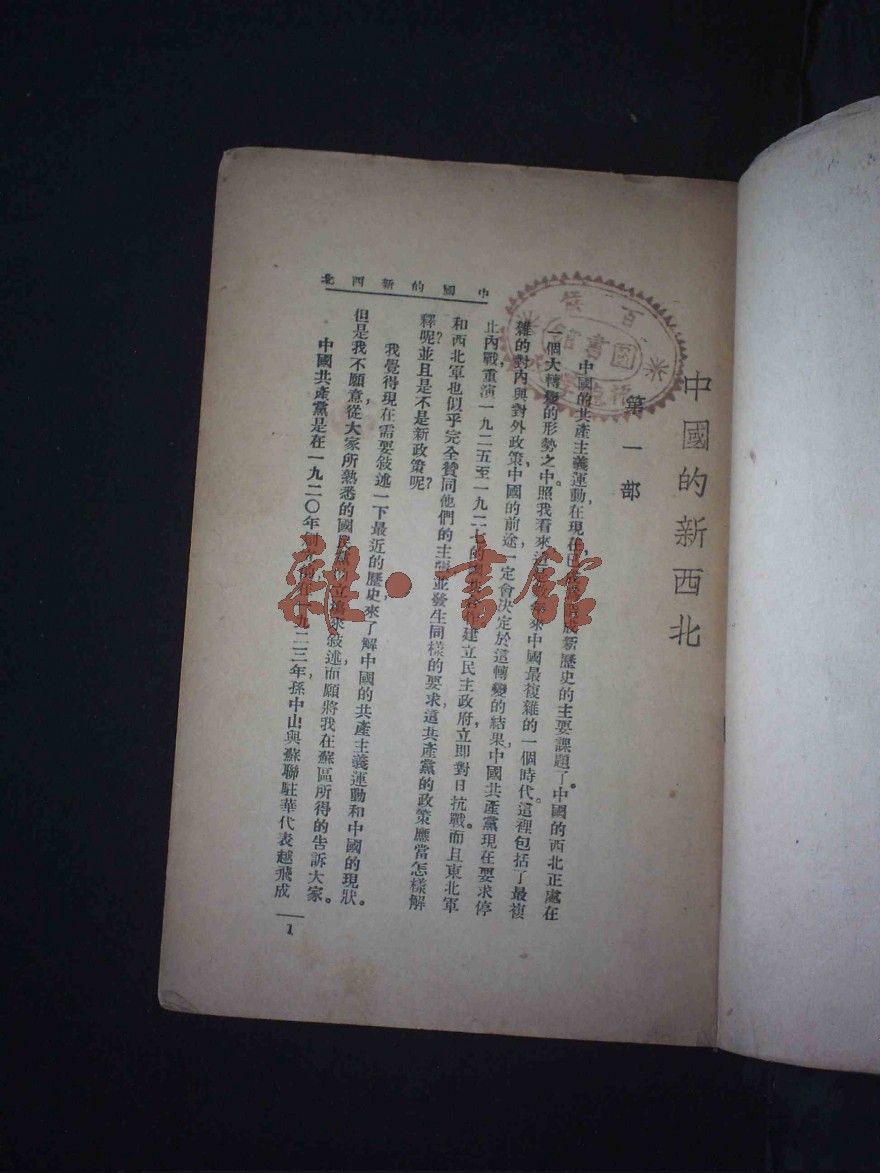 中國的新西北
第一部
中國的共產主義運動在現在已成
成新歷史的主要課題了。中國的西北正處在
一個大轉變的形勢之中。照我看來這是
來中國最複雜的一個時代。這裡包括了最複
雜的對內與對外政策，中國的前途一定會決定於這轉變的結果，中國共產黨現在要求停
止內戰，重演一九二五至一九二七的
建立民主政府，立即對日抗戰。而且東北軍
和西北軍也似乎完全贊同他們的主張並發生同樣的要求，這共產黨的政策應當怎樣解
釋？並且是不是新政策呢？
我覺得現在需要敍述一下最近的歷史來了解中國的共產主義運動和中國的現狀。
但是我不願意從大家所熟悉的國民黨的立場來敍述，而願將我在蘇區所得的告訴大家。
中國共產黨是在一九二〇年
在一九二三年孫中山與蘇聯駐華代表越飛成
中國的新西北
1
百侯
圖書館
雜·書館